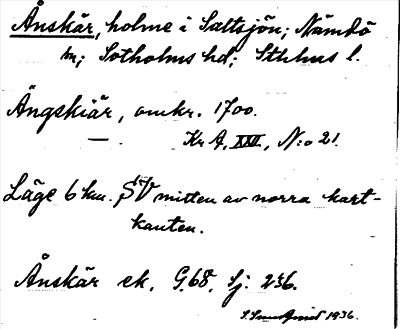 Ånskär, holme i Saltsjön; Nämdö
sn; Sotholms hd; Sthlms l.
Ängskiär, omkr. 1700.
— Kr A, XXII, N:o 21.
Läge 6 km. SV mitten av norra kart-
kanten.
Ånskär ek. G.68, Sj: 236.
1936.